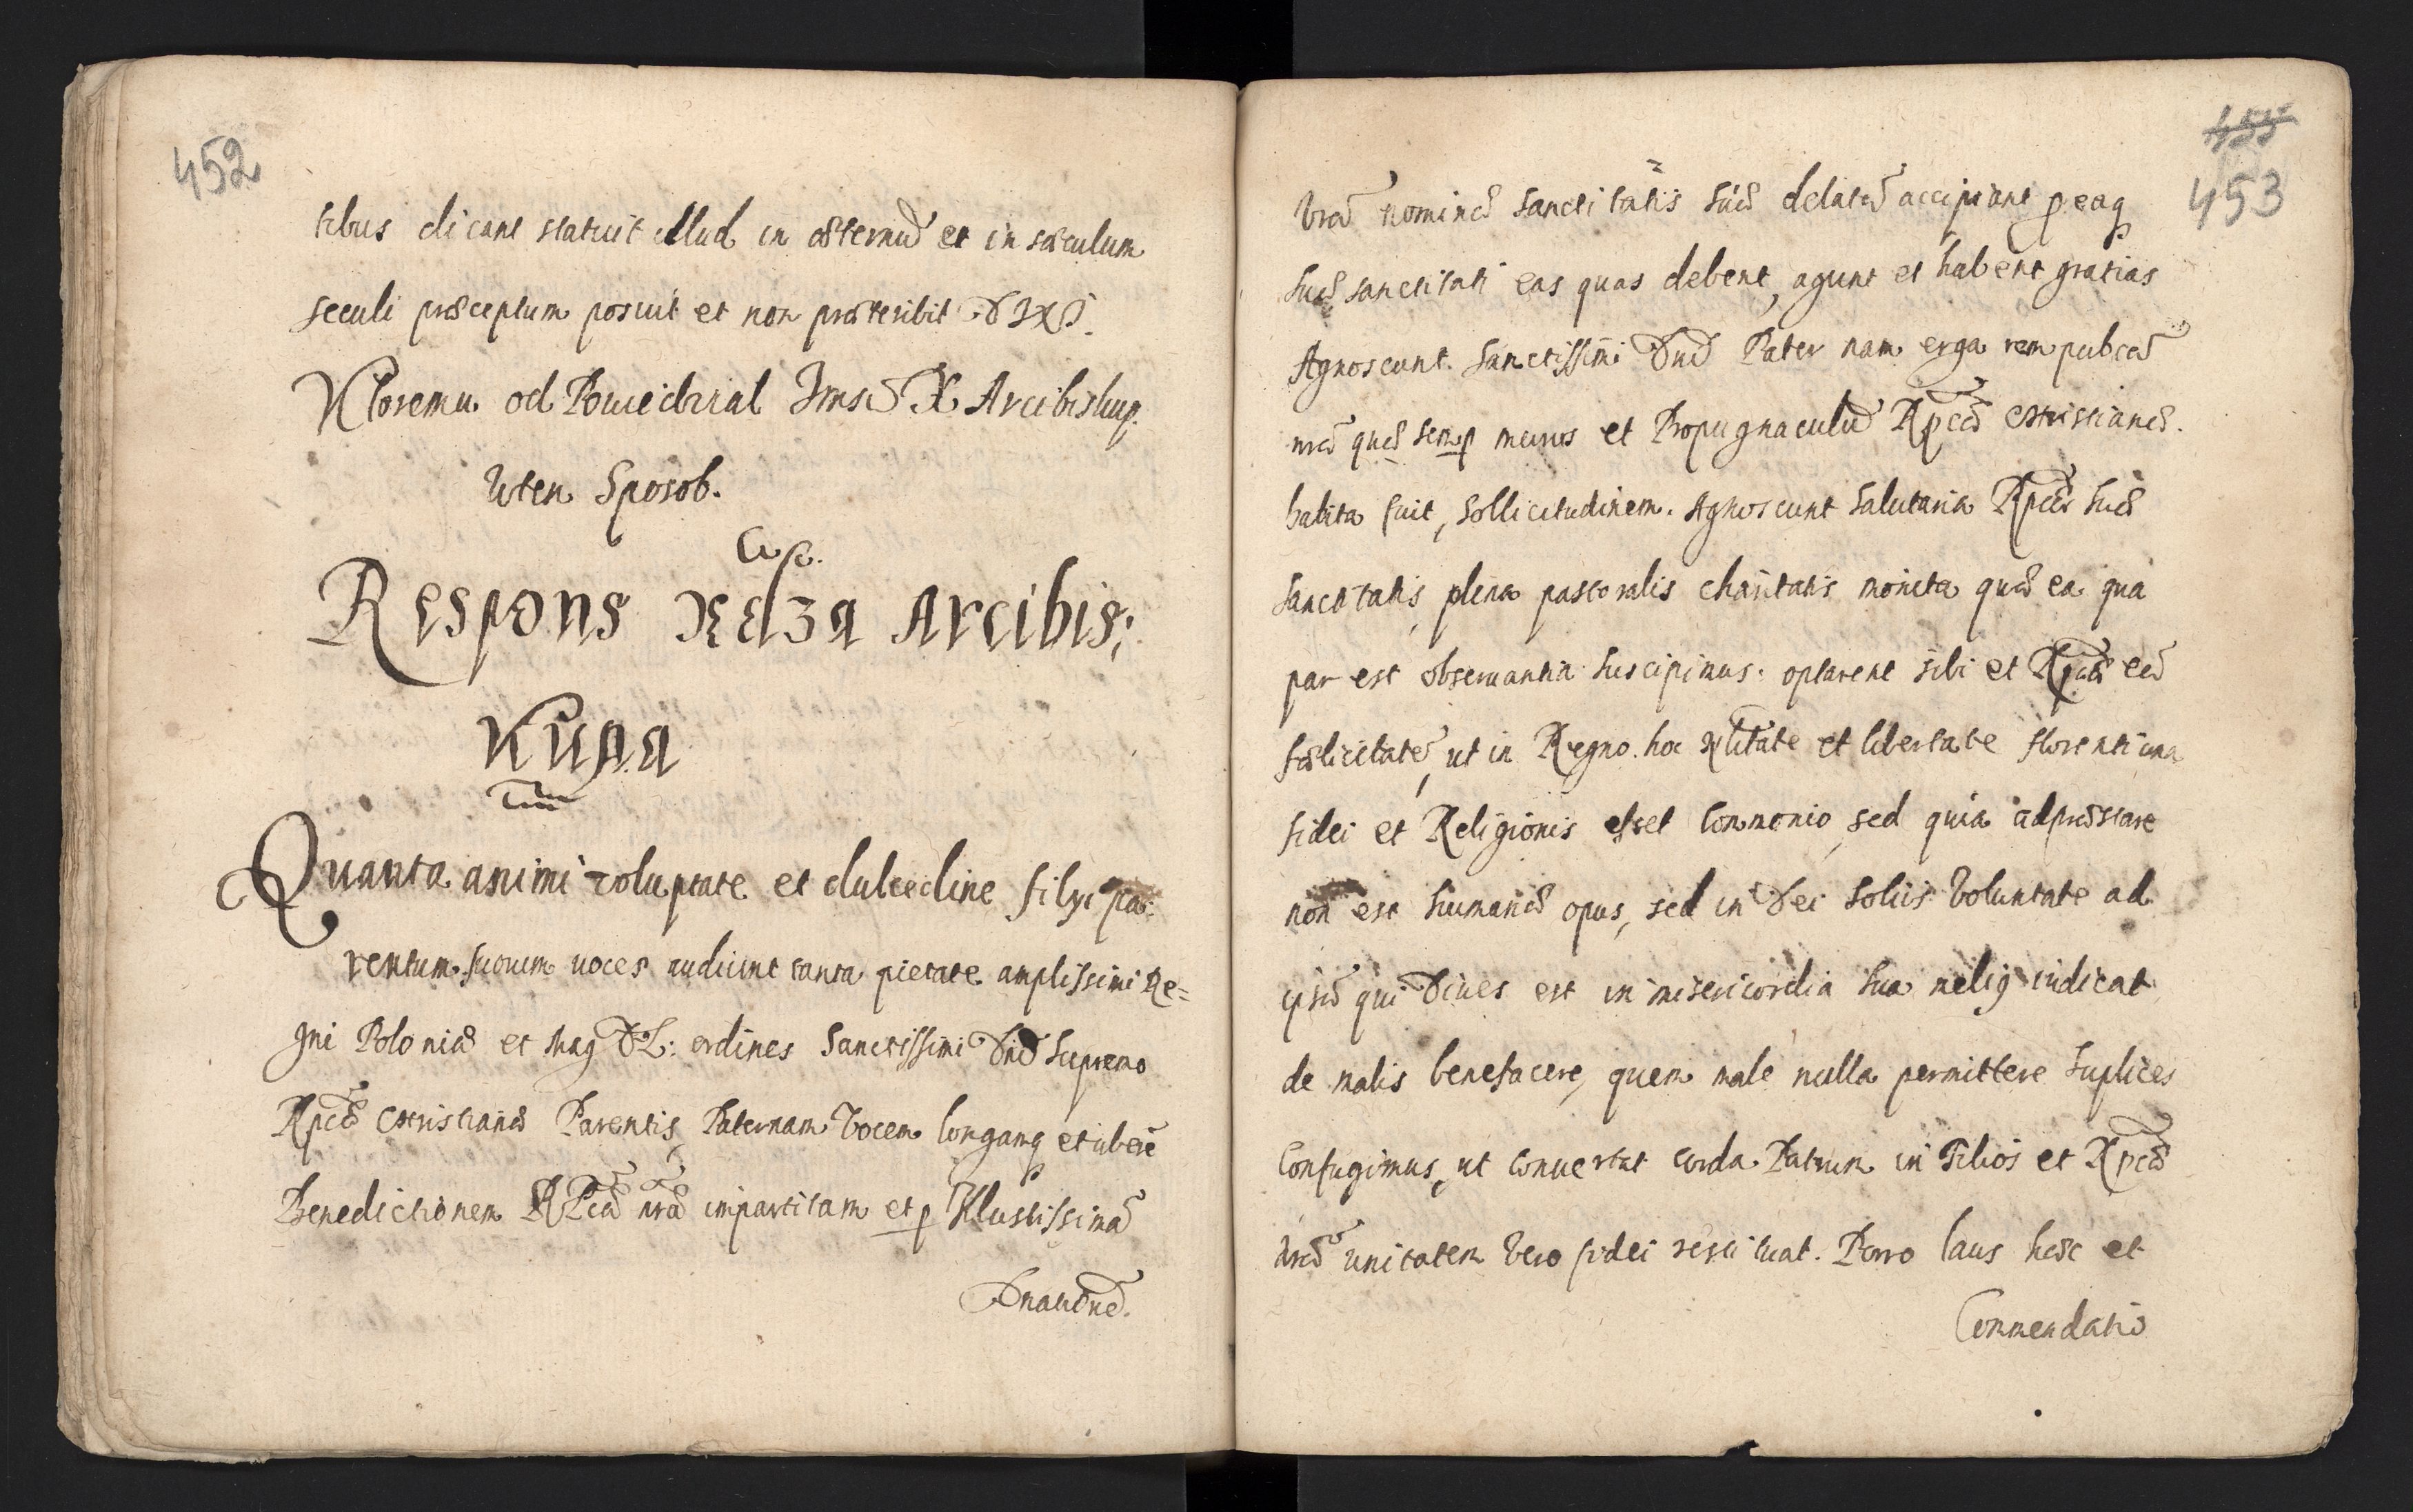 452
tibus dicant statuit illud in æternu et in sæculum
seculi præceptum posuit et non præteribit DIXI.
Ktoremu od Powiedział Jms X Arcibiskup.
wten Sposob.
Respons Xdza Arcibis;
Quanta animi voluptate et dulcedine filÿ pa-
rentum suorum uoces audiunt tanta pietate amplissimi Re=
gni Poloniæ et Mag DL: ordines Sanctissimi Dni Supremo
Rpcæ Christianæ Parentis, Paternam Vocem longamq et uberē
Benedictionem RPcæ nræ impartitam et p Illustissimā
453
Vrā nomine Sanctitatis Suæ delatā accipiunt p eaq
Suæ Sanctitati eas quas debent, agunt et habent gratias
Agnoscunt. Sanctissimi Dni Pater nam erga rem pubcā
nrā quæ semp murus et Propugnaculū Rpcæ Christianæ.
habita fuit, Sollicitudinem. Agnoscunt Salutaria Rpcæ Suæ
Sanctitatis, plena pastoralis charitatis monita quæ ea qua
par est obseruantia Suscipimus. optarent sibi et Rpcæ eā
fælicitatē, ut in Regno. hoc et libertate florenti una
fidei et Religionis esset Conmonio, sed quia id præstare
non est humanæ opus, sed in Dei Solius Voluntate ad
ipsū qui Diues est in misericordia Sua iudicat
de malis benefacere, quem male nulla permittere Suplices
Confugimus, ut Conuertat Corda Patrum in Filios et Rpcæ
unitatem Vero fidei restituat. Porro laus hæc et
Commendatio